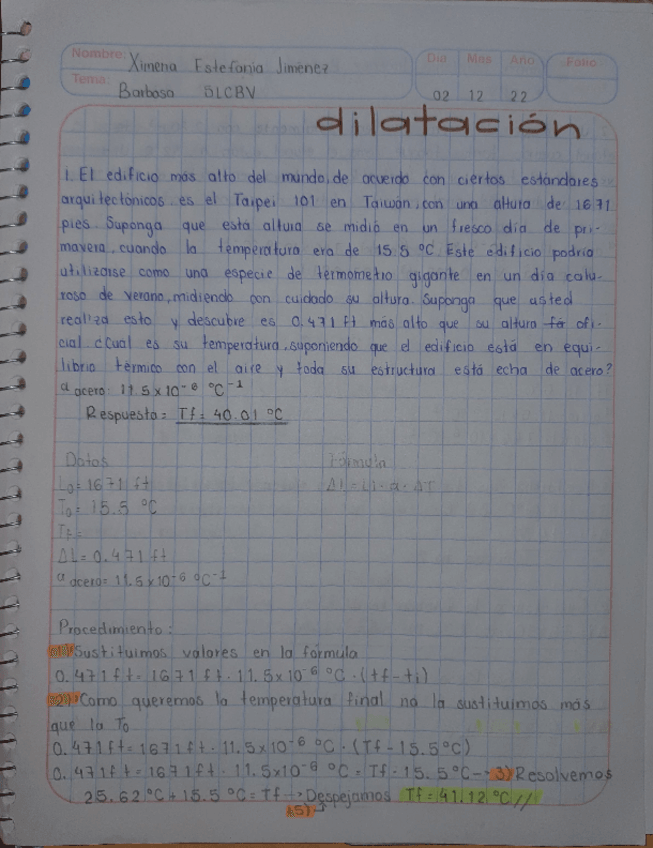 Nombre: Ximena Estefania Jiménez
Día Mes Año Folio
Tema: Barbosa 5LCBV
02 12 22
dilatación
1. El edificio más alto del mundo, de acuerdo con ciertos estándares
arquitectónicos, es el Taipei 101 en Taiwán, con una altura de 1671
pies. Suponga que está altura se midió en un fresco día de pri-
mavera, cuando la temperatura era de 15.5 °C. Este edificio podría
utilizarse como una especie de termómetro gigante en un día calu-
roso de verano, midiendo con cuidado su altura. Suponga que usted
realiza esto y descubre es 0.471 ft más alto que su altura ofi-
cial ¿Cual es su temperatura, suponiendo que el edificio está en equi-
librio térmico con el aire y toda su estructura está echa de acero?
α acero: 11.5x10⁻⁶ °C⁻¹
Respuesta = Tf = 40.01 °C
Datos Fórmula
L₀= 1671 ft ΔL=Li·α·ΔT
T₀= 15.5 °C
Tf=
ΔL= 0.471 ft
α acero= 11.5x10⁻⁶ °C⁻¹
Procedimiento:
1) Sustituimos valores en la fórmula
0.471ft= 1671 ft · 11.5x10⁻⁶ °C · (tf-ti)
2) Como queremos la temperatura final no la sustituimos más
que la T₀
0.471ft= 1671 ft · 11.5x10⁻⁶ °C · (Tf - 15.5°C)
0.471ft= 1671 ft · 11.5x10⁻⁶ °C = Tf - 15.5°C → 3) Resolvemos
25.62 °C + 15.5 °C = Tf → Despejamos Tf = 41.12 °C //
5)